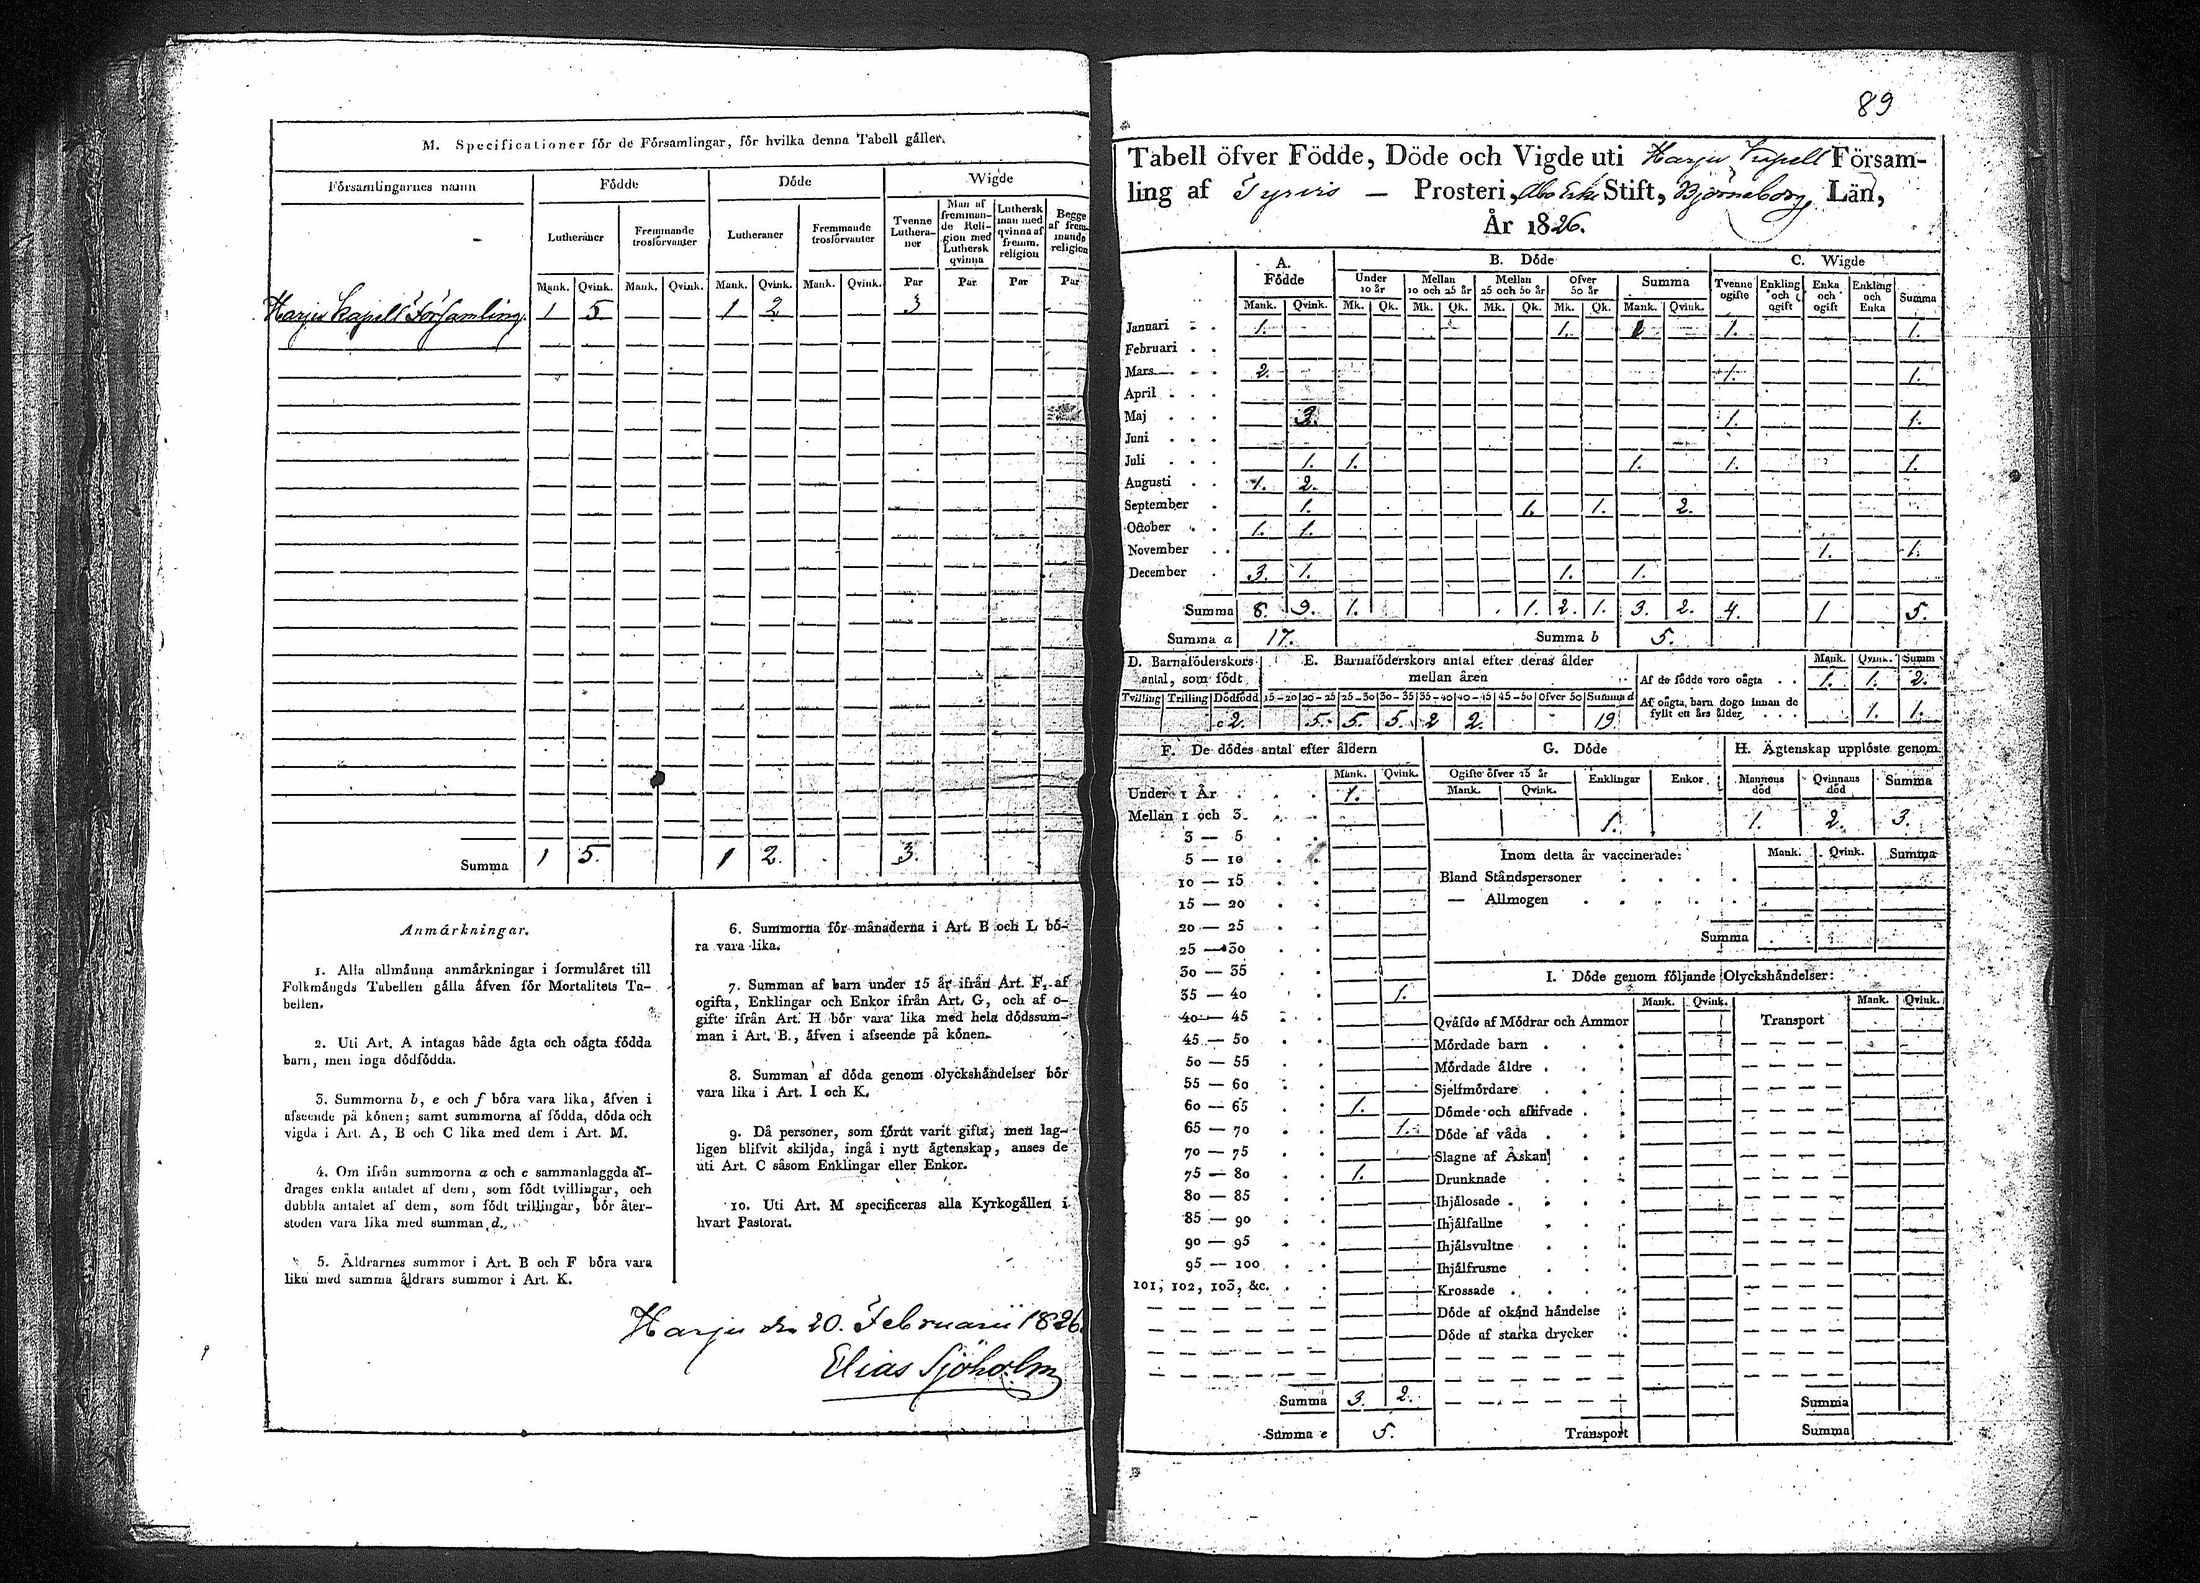 M. Specificationer för de Församlingar, för hvilka denna Tabell gäller.
Församlingarnes namn Födde Döde Wigde
Lutheraner Fremmande trosförvanter Lutheraner Fremmande trosförvanter Tvenne Lutheraner Man af fremmande Religion med Luthersk qvinna Luthersk man med qvinna af fremm. religion Begge af fremmande religion
Mank. Qvink. Mank. Qvink. Mank. Qvink. Mank. Qvink. Par Par Par Par
Harju Kapells Församling. 1 5 1 2 3
Summa 1 5. 1 2. 3.
Anmärkningar.
1. Alla allmänna anmärkningar i formuläret till
Folkmängds Tabellen gälla äfven för Mortalitets Ta-
bellen.
2. Uti Art. A intagas både ägta och oägta födda
barn, men inga dödfödda.
3. Summorna b, e och f böra vara lika, äfven i
afseende på könen; samt summorna af födda, döda och
vigda i Art. A, B och C lika med dem i Art. M.
4. Om ifrån summorna a och c sammanlaggda af-
drages enkla antalet af dem, som födt tvillingar, och
dubbla antalet af dem, som födt trillingar, bör åter-
stoden vara lika med summan d.
5. Åldrarnes summor i Art. B och F böra vara
lika med samma åldrars summor i Art. K.
6. Summorna för månaderna i Art. B och L bö-
ra vara lika.
7. Summan af barn under 15 år ifrån Art. F, af
ogifta, Enklingar och Enkor ifrån Art. G, och af o-
gifte ifrån Art. H bör vara lika med hela dödssum-
man i Art. B., äfven i afseende på könen.
8. Summan af döda genom olyckshändelser bör
vara lika i Art. I och K.
9. Då personer, som förut varit gifta, men lag-
ligen blifvit skiljda, ingå i nytt ägtenskap, anses de
uti Art. C såsom Enklingar eller Enkor.
10. Uti Art. M specificeras alla Kyrkogällen i
hvart Pastorat.
Harju den 20. Februarii 1826
Elias Sjöholm
89
Tabell öfver Födde, Döde och Vigde uti Harju Kapell Försam-
ling af Tyrvis — Prosteri, Åbo Erke Stift, Björneborg Län,
År 1826.
A. Födde B. Döde C. Wigde
Under 10 år Mellan 10 och 25 år Mellan 25 och 50 år Öfver 50 år Summa Tvenne ogifte Enkling och ogift Enka och ogift Enkling och Enka Summa
Mank. Qvink. Mk. Qk. Mk. Qk. Mk. Qk. Mk. Qk. Mank. Qvink.
Januari 1. 1. 1 1. 1.
Februari
Mars 2. 1. 1.
April
Maj 3. 1. 1.
Juni
Juli 1. 1. 1. 1. 1.
Augusti 1. 2.
September 1. 1. 1. 2.
October 1. 1.
November 1. 1.
December 3. 1. 1. 1.
Summa 8. 9. 1. 1. 2. 1. 3. 2. 4. 1 5.
Summa a 17. Summa b 5.
D. Barnaföderskors antal, som födt E. Barnaföderskors antal efter deras ålder mellan åren Mank. Qvink. Summ
Tvilling Trilling Dödfödd 15-20 20-25 25-30 30-35 35-40 40-45 45-50 Öfver 50 Summa d
Af de födde voro oägta 1. 1. 2.
2. 5. 5. 5. 2 2. 19
Af oägta barn dogo innan de fyllt ett års ålder 1. 1.
F. De dödes antal efter åldern G. Döde H. Ägtenskap upplöste genom
Mank. Qvink. Ogifte öfver 15 år Enklingar Enkor Mannens död Qvinnans död Summa
Mank. Qvink.
1. 1. 2. 3.
Under 1 År 1.
Mellan 1 och 3
3 — 5
5 — 10
10 — 15
15 — 20
20 — 25
25 — 30
30 — 35
35 — 40 1.
40 — 45
45 — 50
50 — 55
55 — 60
60 — 65 1.
65 — 70 1.
70 — 75
75 — 80 1.
80 — 85
85 — 90
90 — 95
95 — 100
101, 102, 103, &c.
Summa 3. 2.
Summa e 5.
Inom detta år vaccinerade: Mank. Qvink. Summa
Bland Ståndspersoner
— Allmogen
Summa
I. Döde genom följande Olyckshändelser:
Mank. Qvink. Mank. Qvink.
Qväfde af Mödrar och Ammor Transport
Mördade barn
Mördade äldre
Sjelfmördare
Dömde och aflifvade
Döde af våda
Slagne af Åskan
Drunknade
Ihjälosade
Ihjälfallne
Ihjälsvultne
Ihjälfrusne
Krossade
Döde af okänd händelse
Döde af starka drycker
Summa
Transport Summa